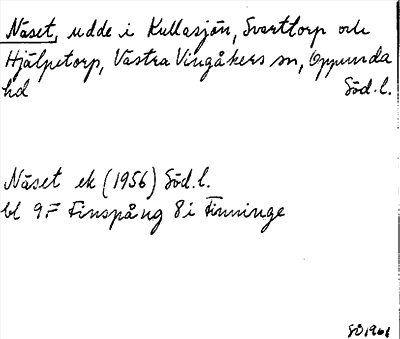 Näset, udde i Kullasjön, Svarttorp och
Hjälpetorp, Västra Vingåkers sn, Oppunda
hd Söd.l.
Näset ek (1956) Söd.l.
bl 9F Finspång 8i Finninge
SÖ1961